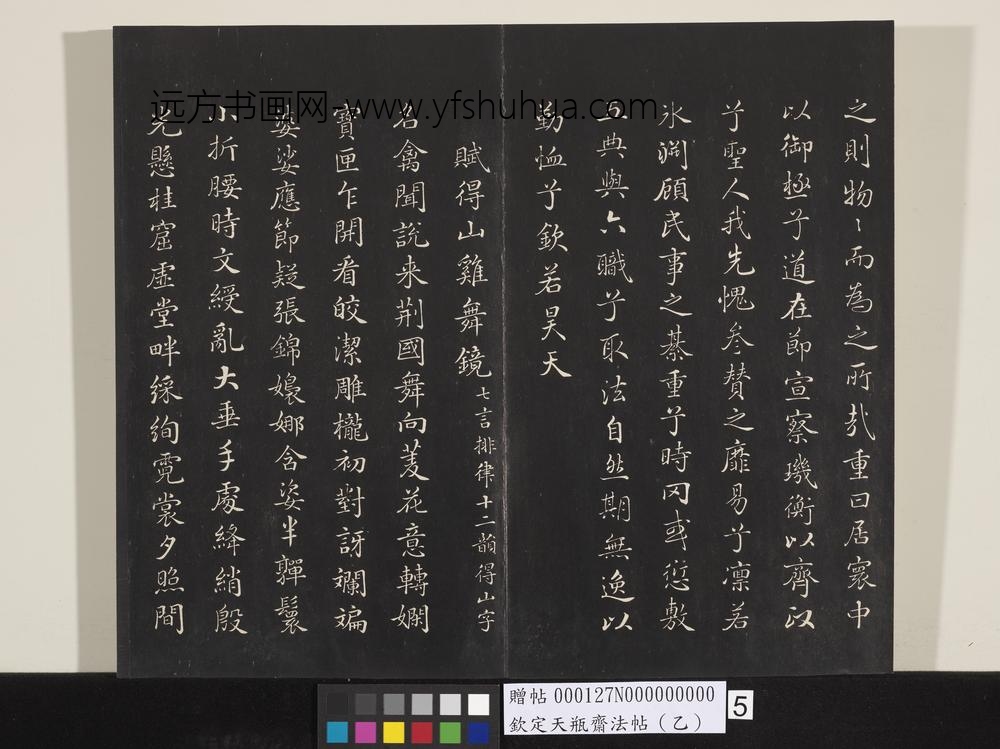 之則物〻而為之所哉重曰居寰中
以御極兮道在節宣察璣衡以齊政
兮聖人我先愧參贊之靡易兮凜若
氷淵顧民事之綦重兮時罔或愆敷
五典與六職兮取法自然期無逸以
勤恤兮欽若昊天
賦得山雞舞鏡七言排律十二韻得山字
名禽聞說来荆國舞向菱花意轉嫻
寶匣乍開看皎潔雕櫳初對訝斕斒
婆娑應節疑張錦嬝娜含姿半嚲鬟
小折腰時文綬亂大垂手處絳綃殷
光懸桂窟虛堂畔綵絢霓裳夕照間
远方书画网-www.yfshuhua.com
贈帖 000127N000000000
欽定天瓶齋法帖（乙）
5